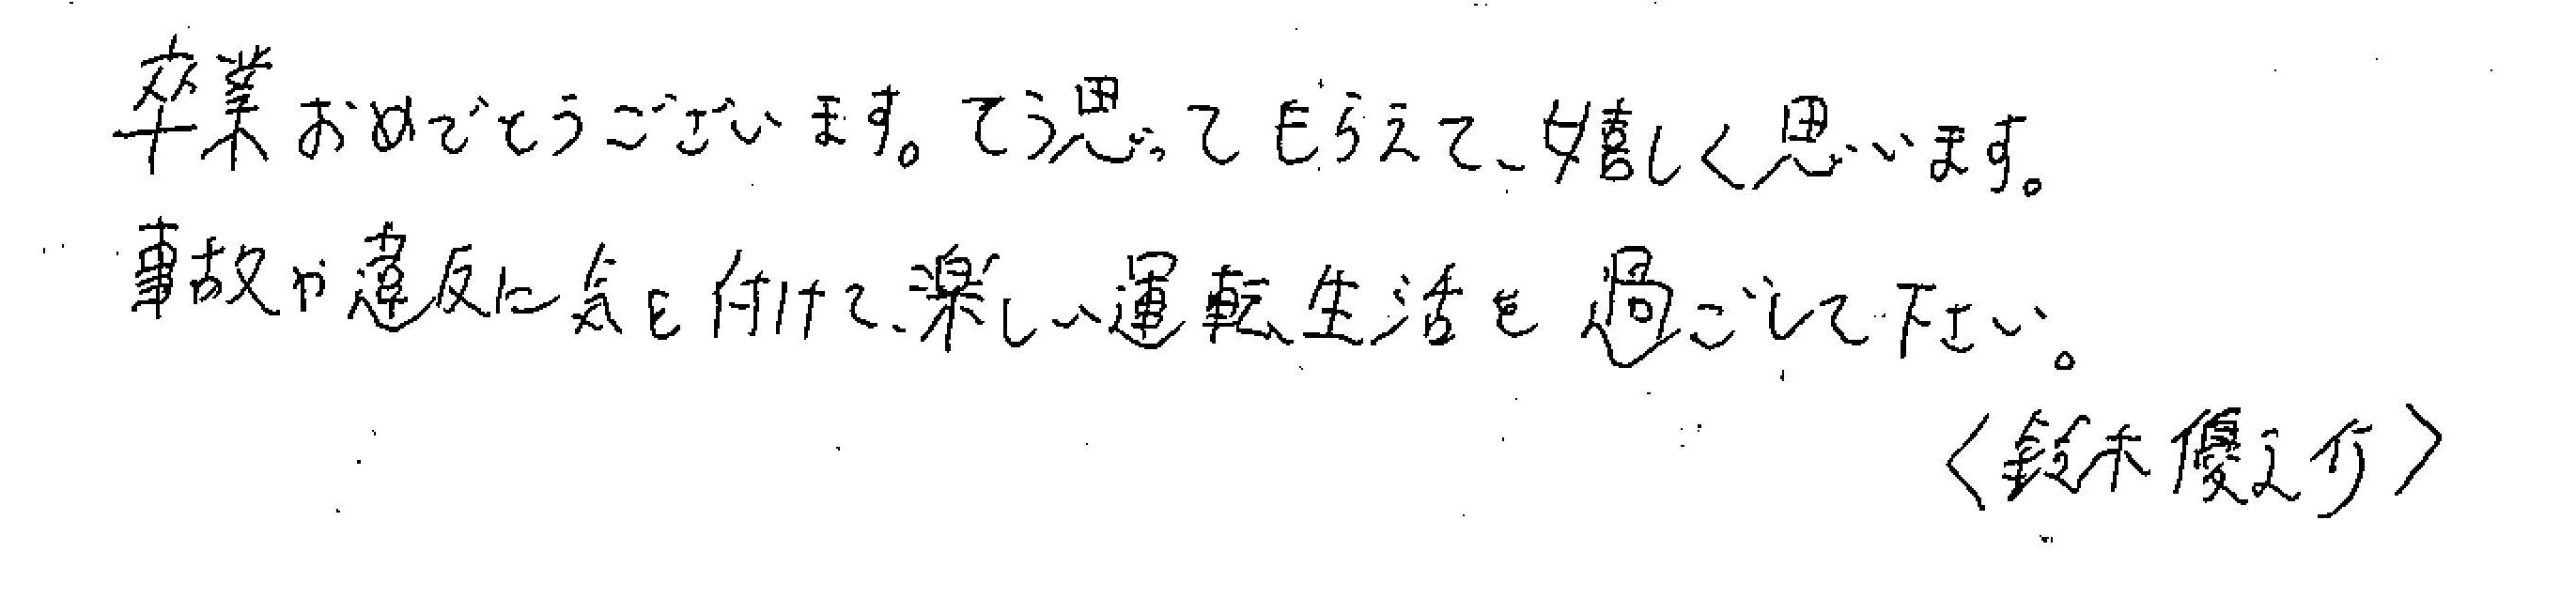 卒業おめでとうございます。そう思ってもらえて、嬉しく思います。
事故や違反に気を付けて、楽しい運転生活を過ごして下さい。
〈鈴木優之介〉